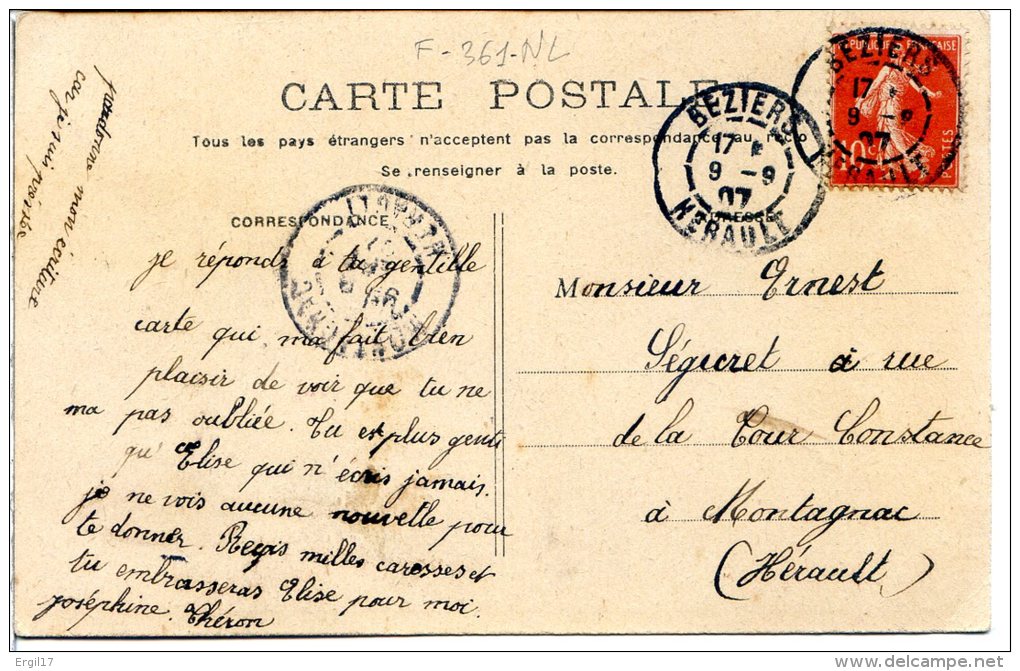 F-361-NL
CARTE POSTALE
Tous les pays étrangers n'acceptent pas la correspondance au recto
Se renseigner à la poste.
CORRESPONDANCE
ADRESSE
BEZIERS
17
9 - 9
07
HERAULT
REPUBLIQUE FRANÇAISE
10 c
POSTES
BEZIERS
17
9 - 9
07
HERAULT
MONTAGNAC
HERAULT
pardonne mon écriture
car je suis
je réponds à ta gentille
carte qui ma fait bien
plaisir de voir que tu ne
ma pas oubliée. Tu es plus genti
qu'Elise qui n'écris jamais.
je ne vois aucune nouvelle pour
te donner. Reçois milles caresses et
tu embrasseras Elise pour moi.
Joséphine Théron
Monsieur Ernest
Séguret à rue
de la Tour Constance
à Montagnac
(Hérault)
Ergil17
delcampe.net